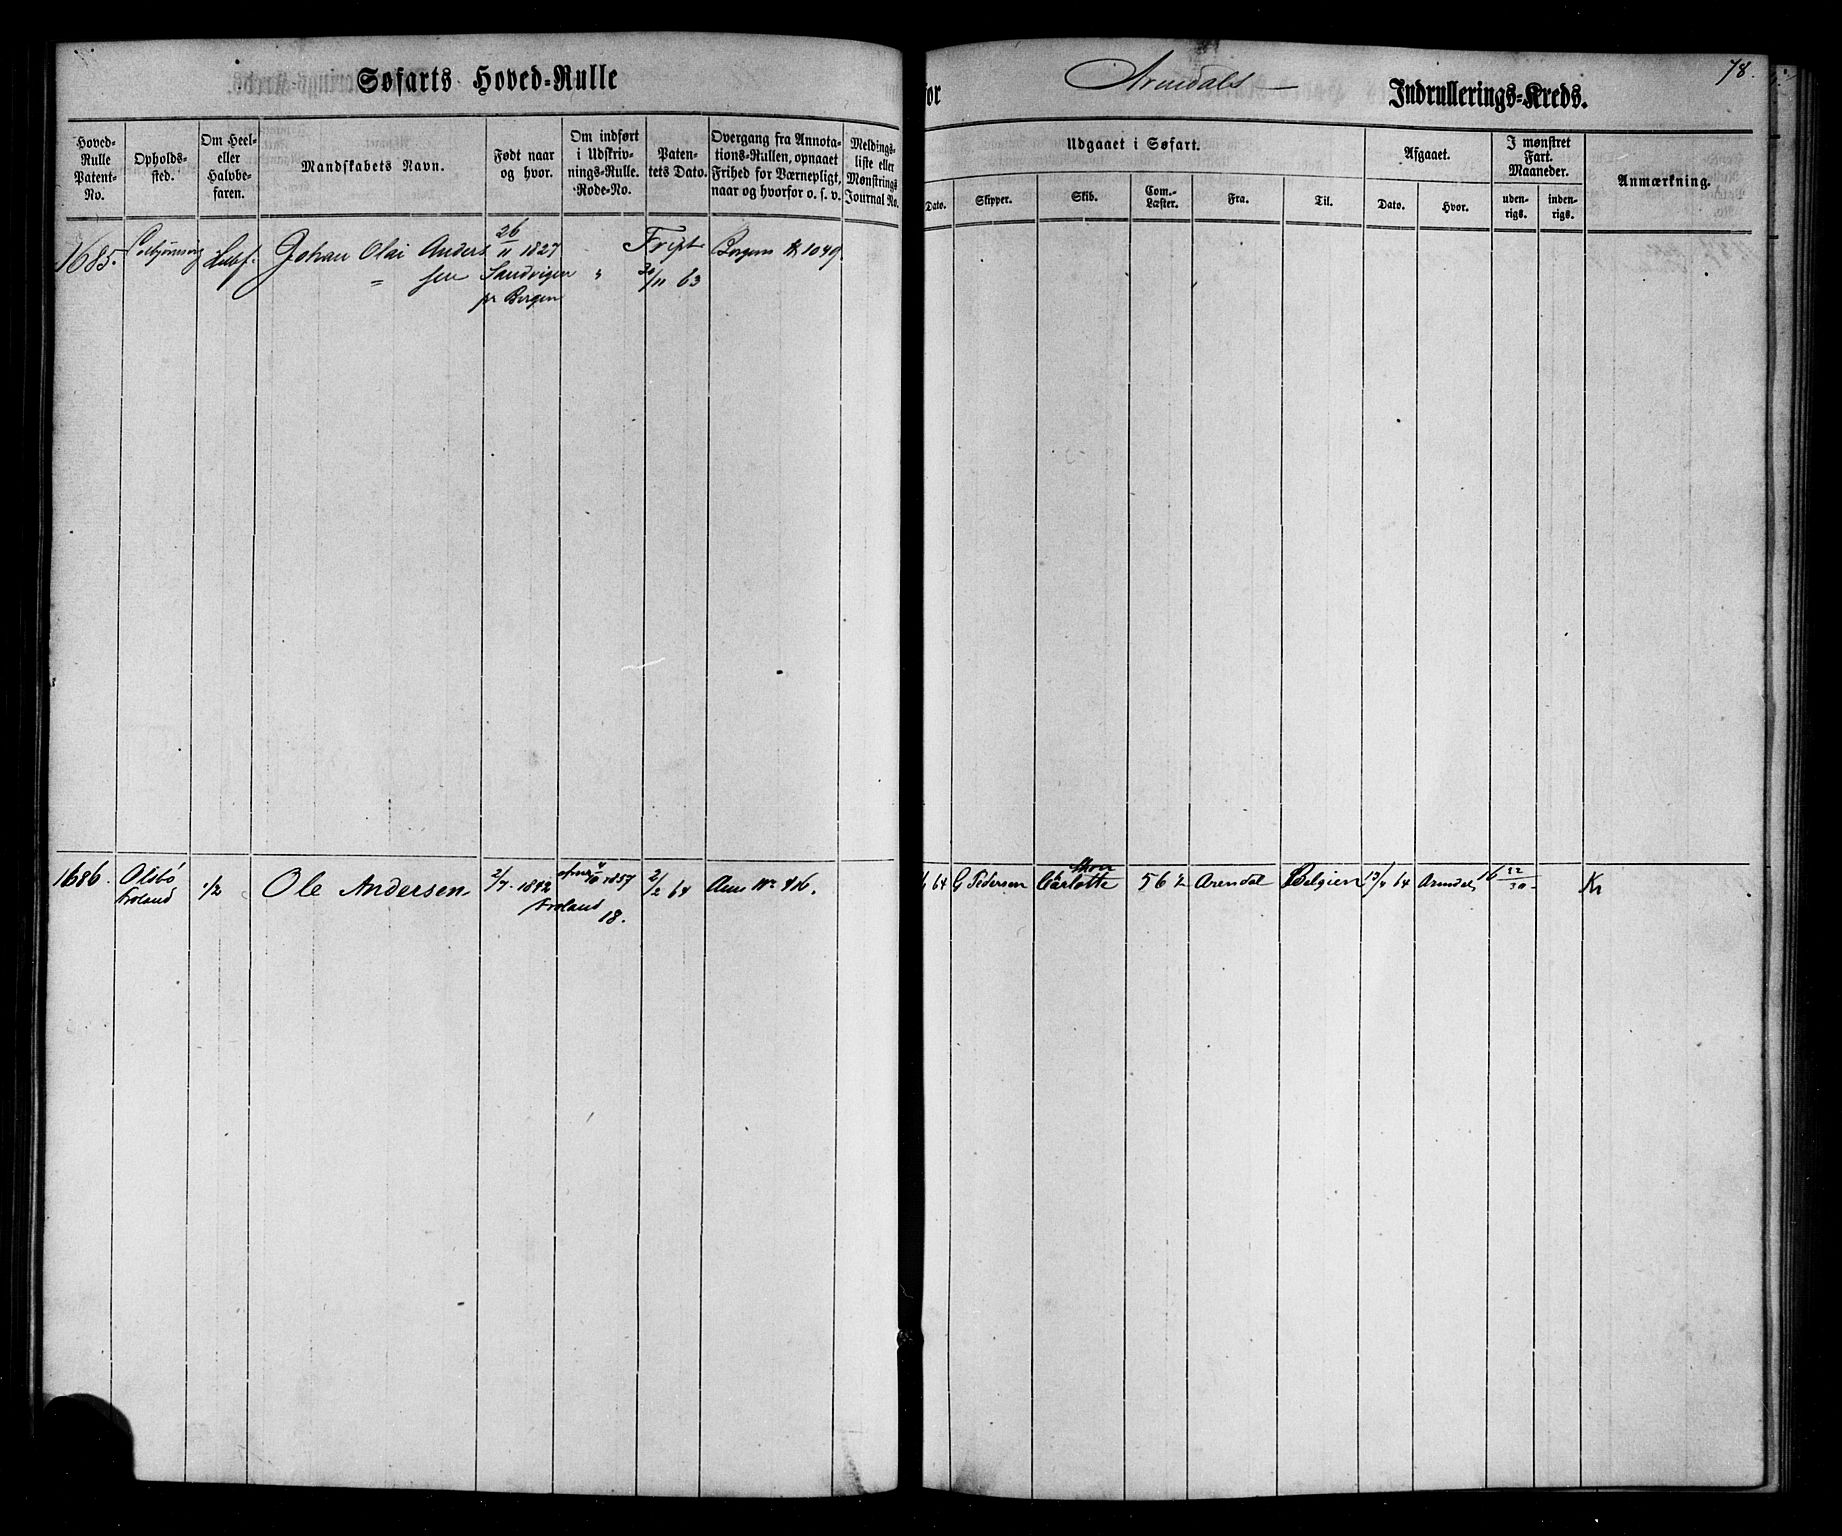 Søfarts Hoved-Rulle
for Arendals Indrullerings-Kreds.
78.
Hoved-Rulle Patent-No.
Opholds-sted.
Om Heel- eller Halvbe-faren.
Mandskabets Navn.
Født naar og hvor.
Om indført i Udskriv-nings-Rulle. Rode-No.
Paten-tets Dato.
Overgang fra Annota-tions-Rullen, opnaaet Frihed for Værnepligt, naar og hvorfor o. s. v.
Meldings-liste eller Mønstrings Journal No.
Udgaaet i Søfart.
Dato.
Skipper.
Skib.
Com.-Læster.
Fra.
Til.
Afgaaet.
Dato.
Hvor.
I mønstret Fart. Maaneder.
uden-rigs.
inden-rigs.
Anmærkning.
1685. Johan Olai Anders
= sen
26/11 1827
Sandvigen
pr Bergen
"
30/11 63
Bergens № 1049.
1686.
Olsbö
Froland
1/2
Ole Andersen
2/7. 1842
Froland
1857
18.
2/2 64
Ann № 416.
64
G Pedersen
Carlotte
56 1/2
Arendal
Belgien
13/4 64
Arendal
16 22/30